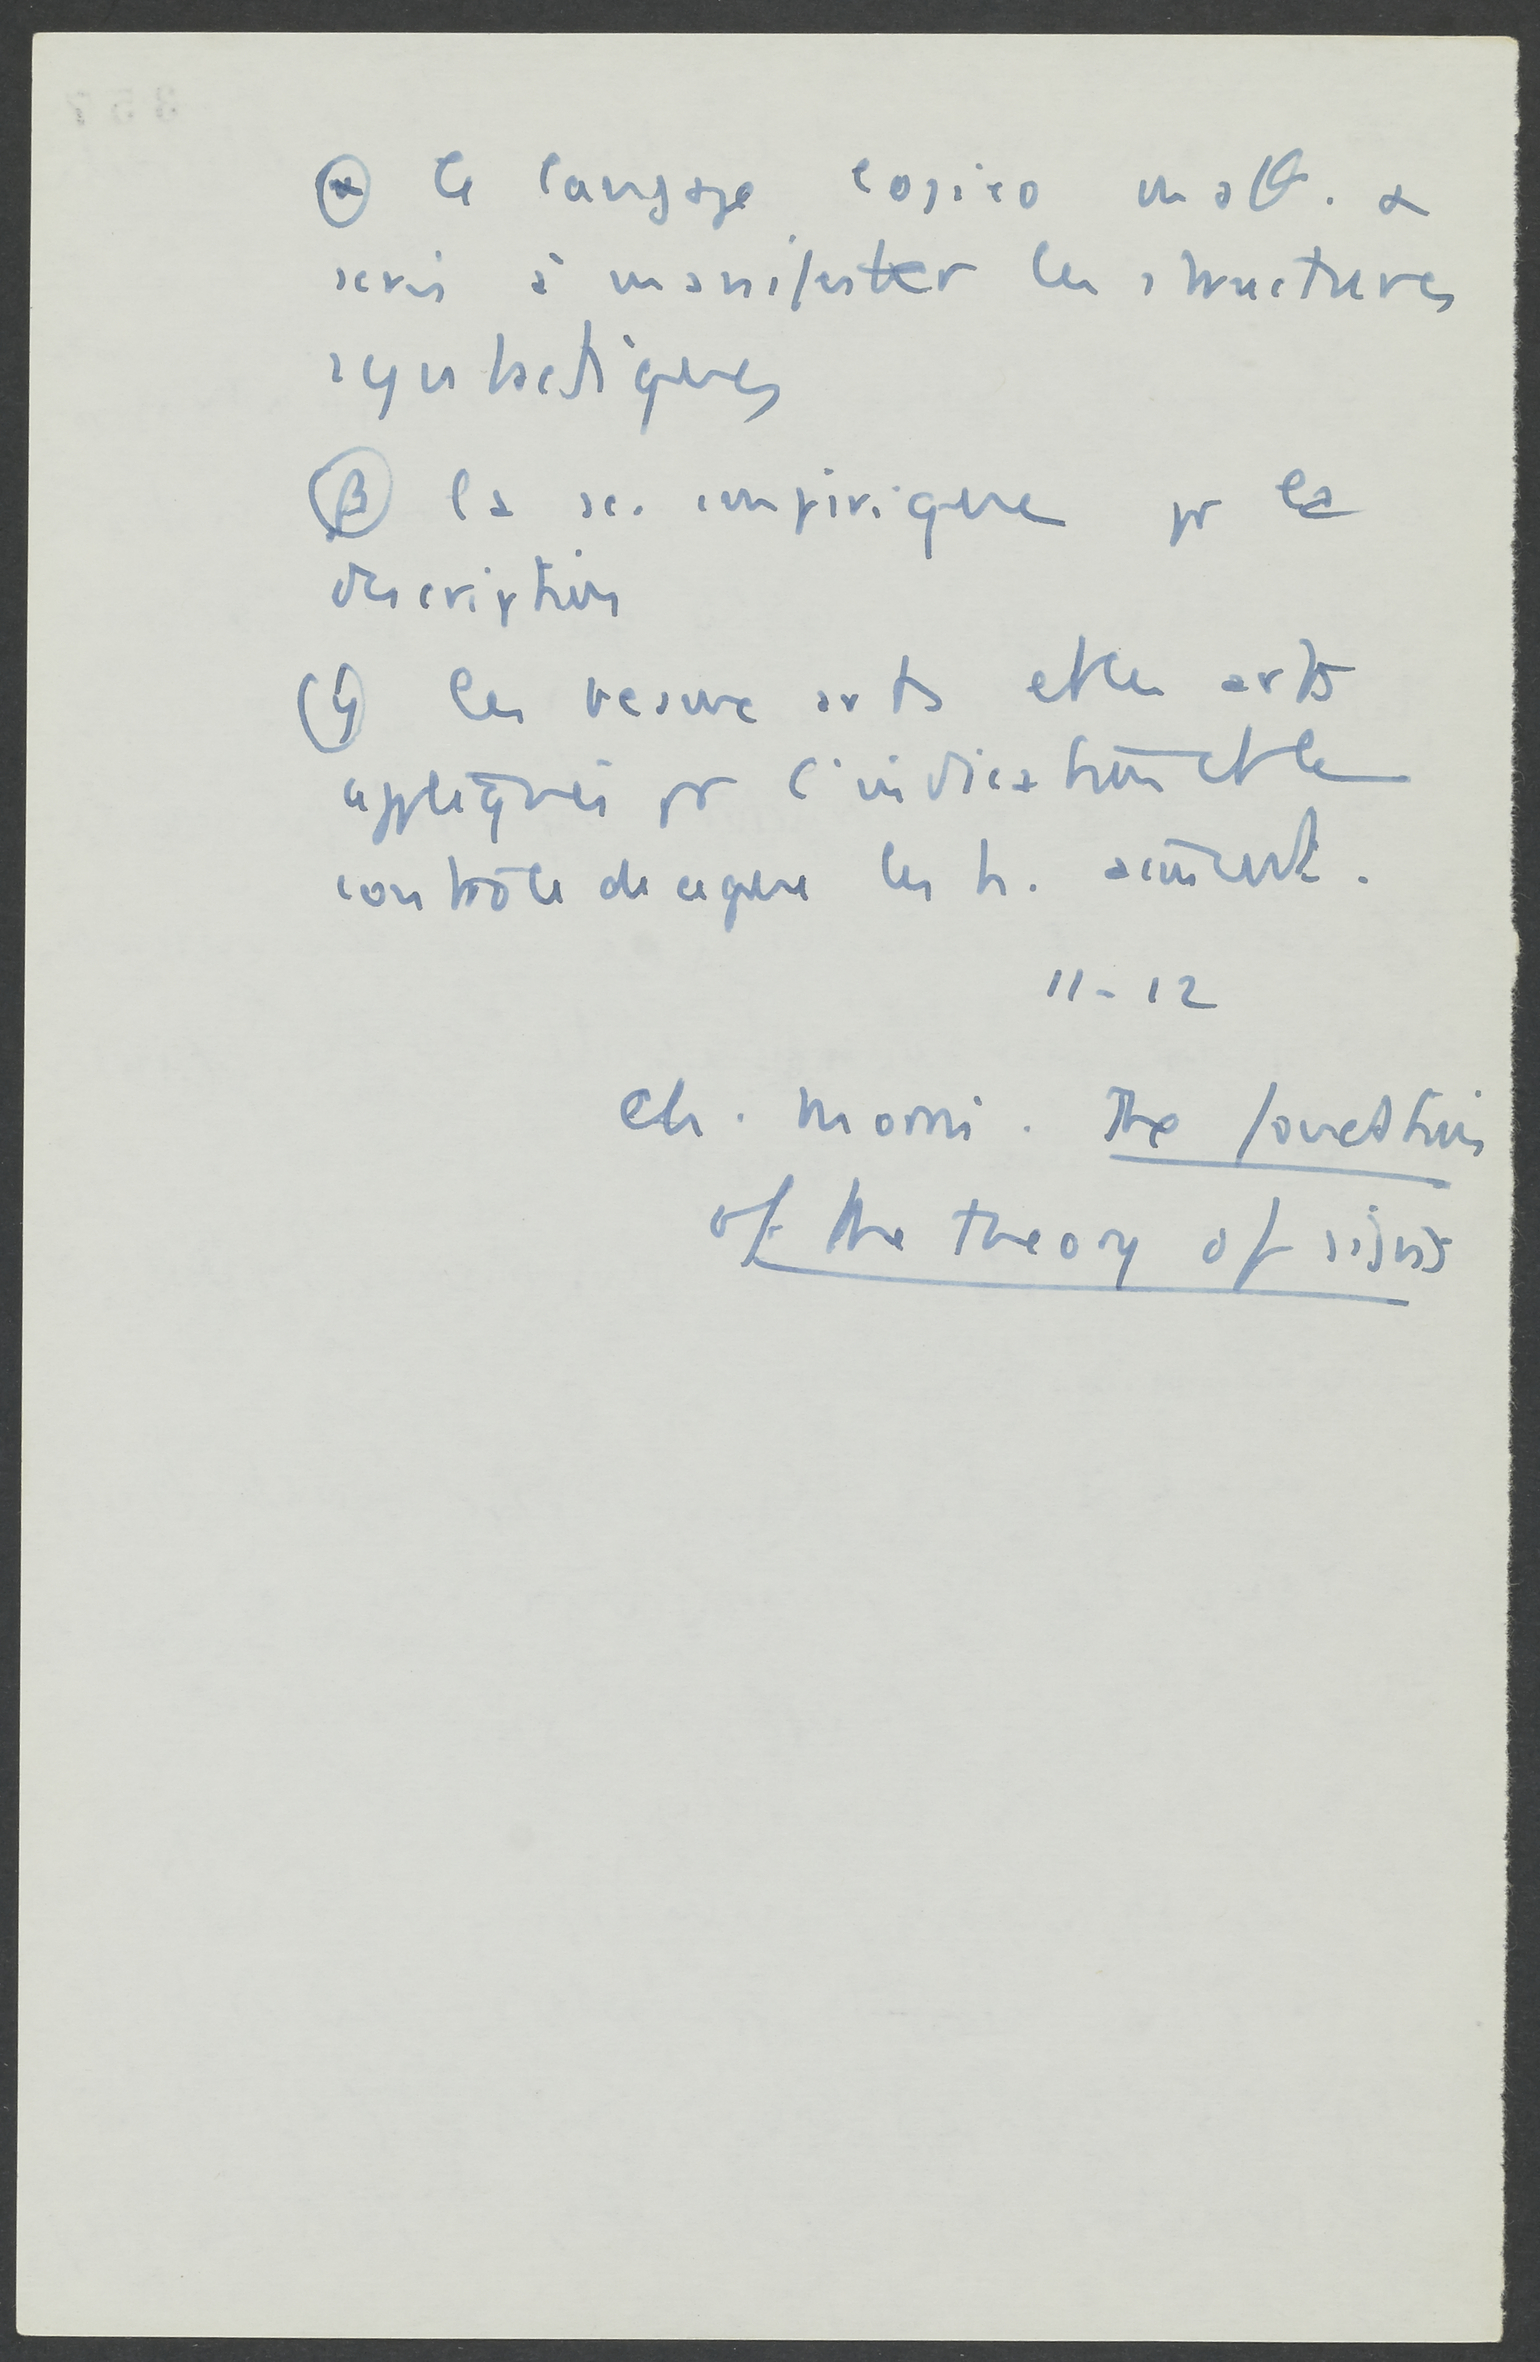 ⓐ le langage logico math. a
servi à manifester les structures
syntactiques
ⓑ la sc. empirique pr la
description
les beaux arts et les arts
appliqués pr l'indication et le
contrôle de ce que les h. aiment.
11-12
Ch. Morris. The foundation
of the theory of signs